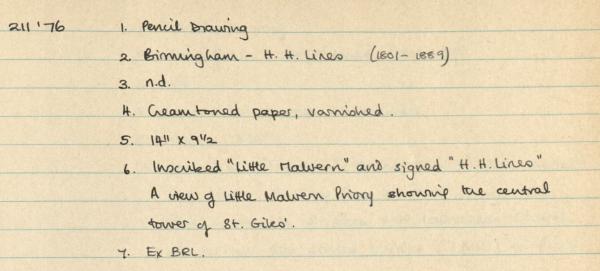 211 '76 1. Pencil Drawing
2. Birmingham - H. H. Lines (1801-1889)
3. n.d.
4. Creamtoned paper, varnished.
5. 14" x 9 1/2
6. Inscribed "Little Malvern" and signed "H.H. Lines"
A view of Little Malvern Priory showing the central
tower of St. Giles'.
7. Ex BRL.